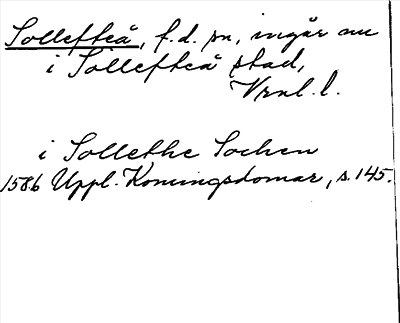 Sollefteå, f.d. sn, ingår nu
i Sollefteå stad,
Vrnl. l.
i Sollethe Sochen
1586 Uppl. Konungsdomar, s. 145.